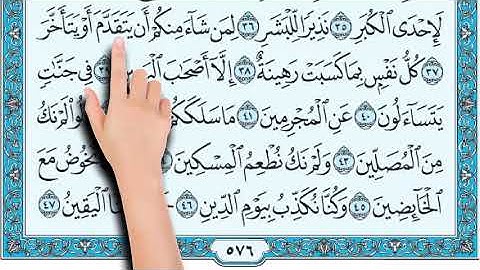 لَإِحْدَى ٱلْكُبَرِ ٣٥ نَذِيرًا لِّلْبَشَرِ ٣٦ لِمَن شَآءَ مِنكُمْ أَن يَتَقَدَّمَ أَوْ يَتَأَخَّرَ
٣٧ كُلُّ نَفْسٍۭ بِمَا كَسَبَتْ رَهِينَةٌ ٣٨ إِلَّآ أَصْحَٰبَ فِى جَنَّٰتٍ
يَتَسَآءَلُونَ ٤٠ عَنِ ٱلْمُجْرِمِينَ ٤١ مَا سَلَكَكُمْ لَمْ نَكُ
مِنَ ٱلْمُصَلِّينَ ٤٣ وَلَمْ نَكُ نُطْعِمُ ٱلْمِسْكِينَ نَخُوضُ مَعَ
ٱلْخَآئِضِينَ ٤٥ وَكُنَّا نُكَذِّبُ بِيَوْمِ ٱلدِّينِ ٤٦ ٱلْيَقِينُ ٤٧
٥٧٦